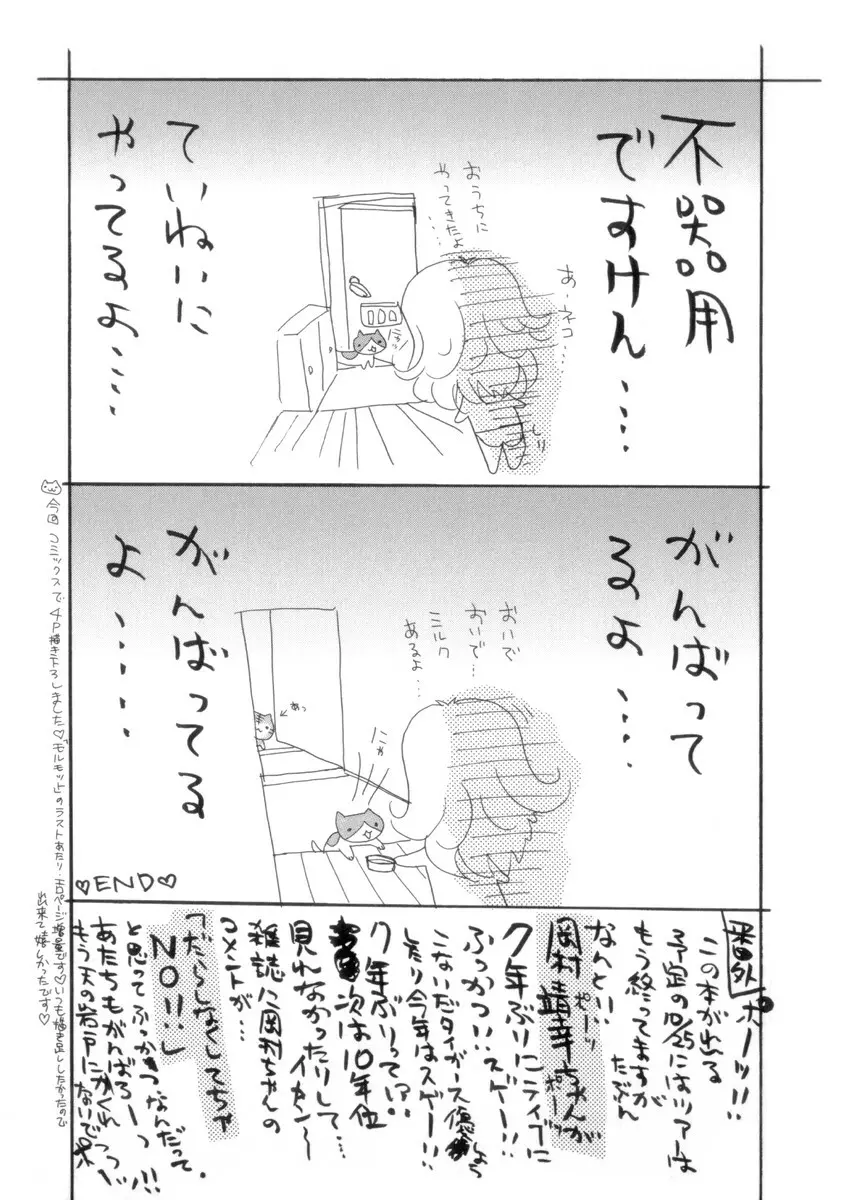 不器用
ですけん…
おうちに
やってきたよ…
あーネコ…
にゃっ
しり
ていねいに
やってるよ…
がんばって
るよ…
おいで
おいで…
ミルク
あるよ…
にゃ
あっ
がんばってる
よ……
♡END♡
番外
ポーッ!!
この本が出る
予定の10/25にはツアーは
もう終ってますが
たぶん
なんとい…
ポーッ
岡村靖幸ちゃんが
ポーッ
7年ぶりにライブに
ふっかつ!!スゲー!!
こないだタイガース優勝しよう
したり今年はスゲー!!
7年ぶりって!?
次は10年位
見れなかったりして…
イカン〜
雑誌に岡村ちゃんの
コメントが…
「だらしなくしてちゃ
NO!!」
と思ってふっかつなんだって.
あたちもがんばろーっ!!!
もう天の岩戸にかくれ
ないでっっ
今回コミックスで4P描き下ろしました♡「モルモット」のラストあたり.エロページ増量です♡いつも描き足ししたかったので
出来て嬉しかったです♡